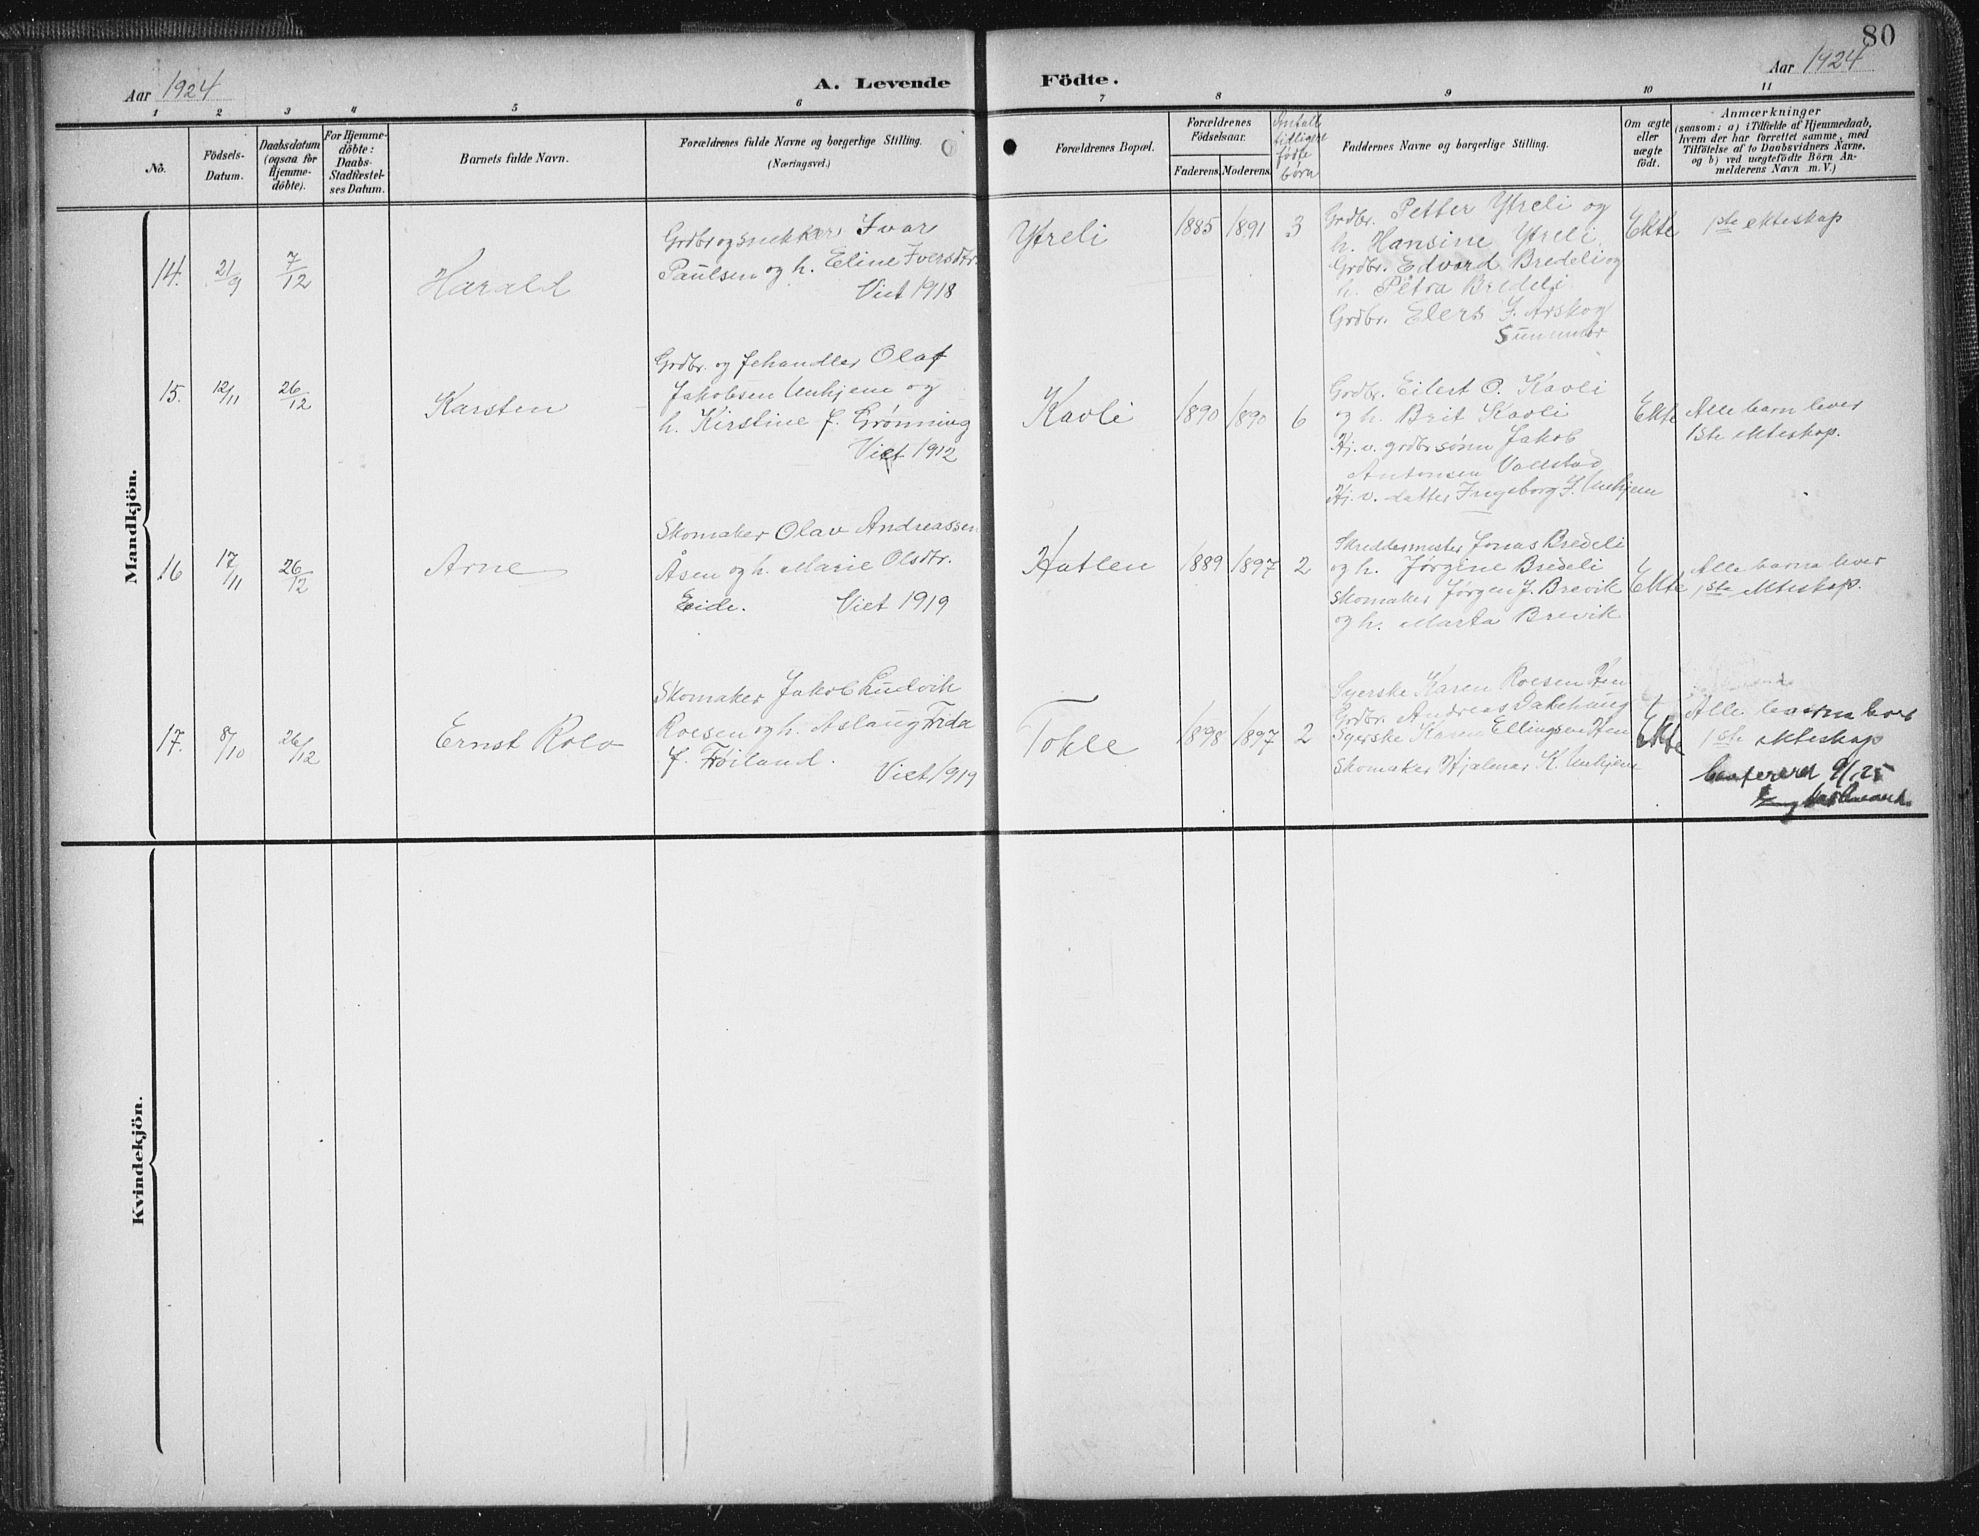 80
Aar 1924
A. Levende Födte.
Aar 1924
1 2 3 4 5 6 7 8 9 10 11
No.
Födsels-
Datum.
Daabsdatum
(ogsaa for
Hjemme-
döbte).
For Hjemme-
döbte:
Daabs-
Stadfæstel-
ses Datum.
Barnets fulde Navn.
Forældrenes fulde Navne og borgerlige Stilling.
(Næringsvei.)
Forældrenes Bopæl.
Forældrenes
Födselsaar.
Faderens. Moderens.
Antall
tidligere
fødte
børn
Faddernes Navne og borgerlige Stilling.
Om ægte
eller
uægte
födt.
Anmærkninger
(saasom: a) i Tilfælde af Hjemmedaab,
hvem der har forrettet samme, med
Tilföielse af to Daabsvidners Navne.
og b) ved uægtefödte Börn An-
melderens Navn m. V.)
Mandkjön.
14. 21/9 7/12
Harald
Grdbr og snekker Ivar
Paulsen og h. Eline Iversdtr.
Viet 1918
Ytreli
1885 1891 3
Grdbr. Petter Ytreli og
h. Hansine Ytreli
Grdbr. Edvard Bredeli og
h. Petra Bredeli
Grdbr. Elers J. Årskog
Sunnmør
Ekte
1ste ekteskap
15. 12/11 26/12
Karsten
Grdbr. og fehandler Olaf
Jakobsen Unhjem og
h. Kirstine f. Grønning
Viet 1912
Kavli
1890 1890 6
Grdbr. Eilert O. Kavli
og h. Brit Kavli
Hj. v. grdbrsønn Jakob
Antonsen Vollstad
Hj. v. datter Ingeborg J. Unhjem
Ekte
Alle barn lever
1ste ekteskap.
16 17/11 26/12
Arne
Skomaker Olav Andreassen
Åsen og h. Marie Olsdtr.
Eide. Viet 1919
Hatlen
1889 1897 2
Skreddermester Jonas Bredeli
og h. Jørgine Bredeli
Skomaker Jørgen J. Brevik
og h. Marta Brevik
Ekte
Alle barna lever
1ste ekteskap.
17. 8/10 26/12
Ernst Rolv
Skomaker Jakob Ludvik
Roesen og h. Aslaug Frida
f. Frøiland.
Viet 1919
Tokle
1898 1897 2
Syerske Karen Roesen Hen
Grdbr. Andreas Dalehaug
Syerske Karen Ellingsen Hen
Skomaker Hjalmar K. Unhjem
Ekte
Alle barna lever
1ste ekteskap
Confereret 9/1 25
Kvindekjön.